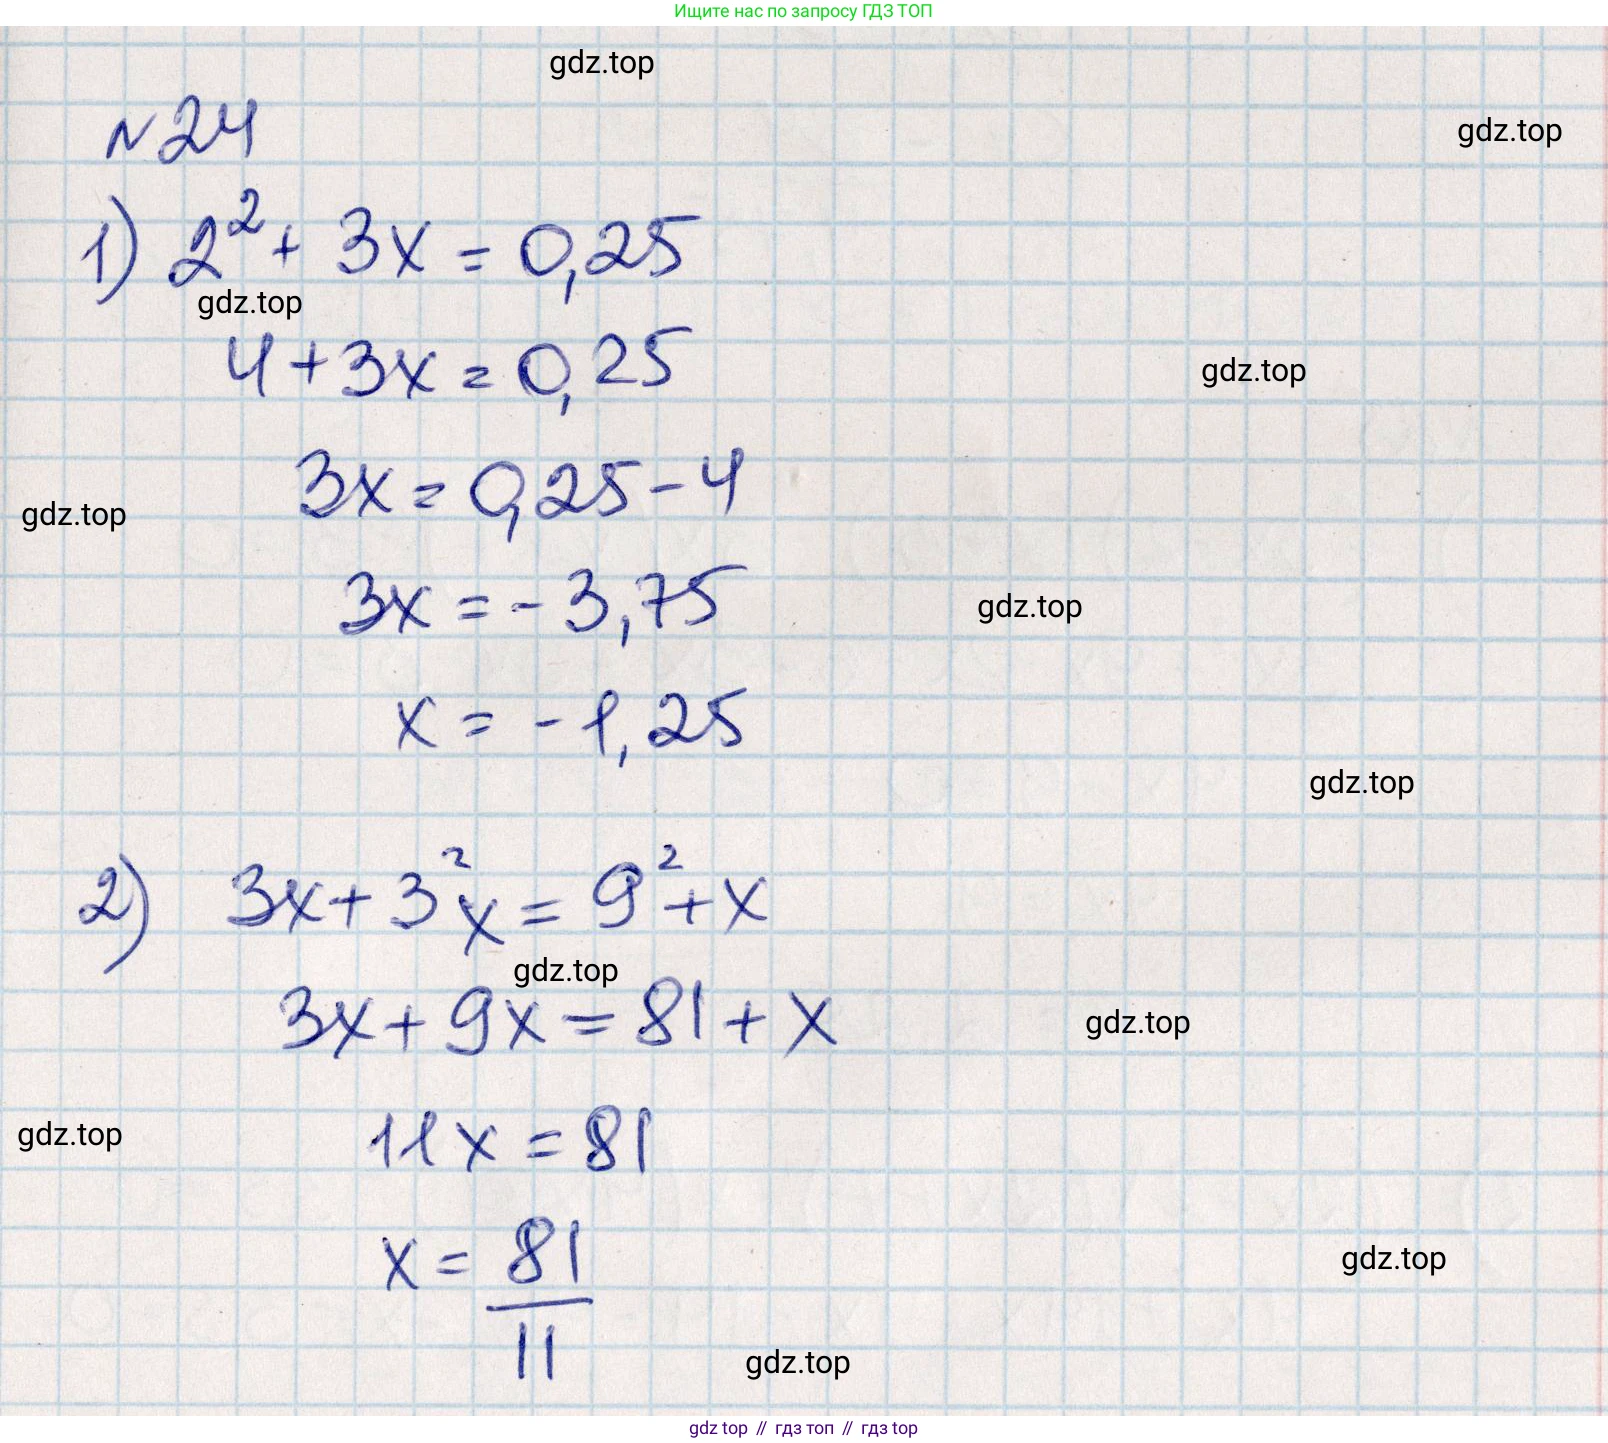 Ищите нас по запросу ГДЗ ТОП
gdz.top
№24
gdz.top
1) 2² + 3x = 0,25
gdz.top
4 + 3x = 0,25
gdz.top
3x = 0,25 - 4
gdz.top
3x = - 3,75
gdz.top
x = - 1,25
gdz.top
2) 3x + 3²x = 9² + x
gdz.top
3x + 9x = 81 + x
gdz.top
11x = 81
gdz.top
x = 81/11
gdz.top
gdz.top
gdz top // гдз топ // гдз top